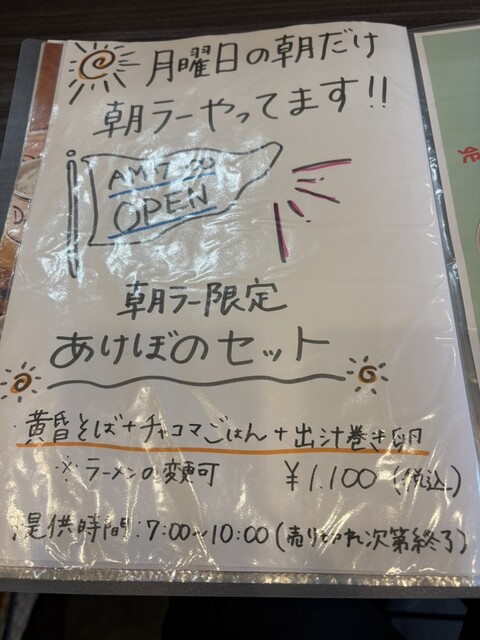 月曜日の朝だけ
朝ラーやってます!!
AM7:00
OPEN
朝ラー限定
あけぼのセット
・黄昏そば+チャコマごはん+出汁巻き卵
※ラーメンの変更可 ¥1,100(税込)
提供時間:7:00~10:00(売り切れ次第終了)